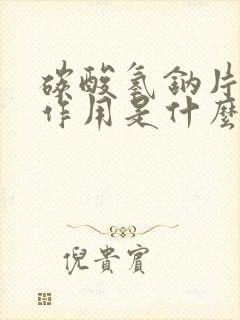 碳酸氢鈉片
作用是什麼
倪貴賓